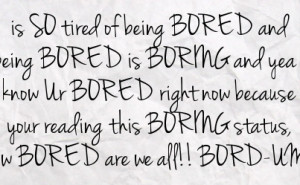 is SO tired of being BORED and
eing BORED is BORING and yea
know Ur BORED right now because
your reading this BORING status,
w BORED are we all!! BORD-UM